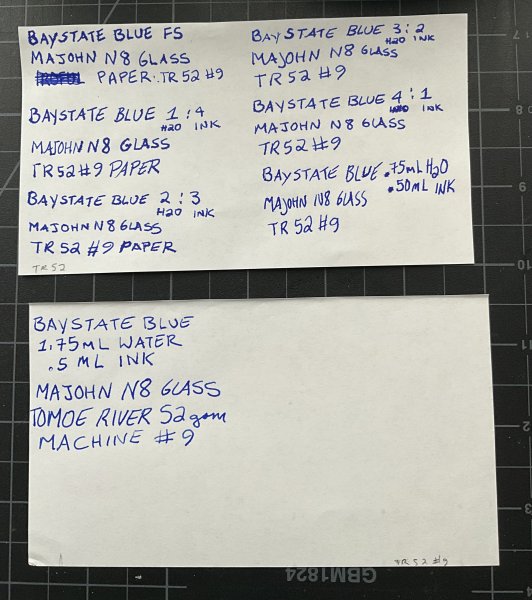 BAYSTATE BLUE FS
MAJOHN N8 GLASS
PAPER: TR 52 #9
BAYSTATE BLUE 1 : 4
H2O INK
MAJOHN N8 GLASS
TR52 #9 PAPER
BAYSTATE BLUE 2 : 3
H2O INK
MAJOHN N8 GLASS
TR 52 #9 PAPER
TR 52
BAYSTATE BLUE 3 : 2
H2O INK
MAJOHN N8 GLASS
TR 52 #9
BAYSTATE BLUE 4 : 1
INK
MAJOHN N8 GLASS
TR 52 #9
BAYSTATE BLUE .75ML H2O
.50ML INK
MAJOHN N8 GLASS
TR 52 #9
BAYSTATE BLUE
1.75ML WATER
.5 ML INK
MAJOHN N8 GLASS
TOMOE RIVER 52 gsm
MACHINE #9
TR 52 #9
GBM1824
11
10
2
1